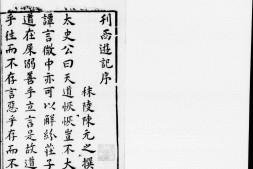 刊西遊記序
秣陵陳元之撰
太史公曰天道恢恢豈不大
譚言微中亦可以解紛莊子
道在屎溺善乎立言是故道
乎往而不存言惡乎存而不